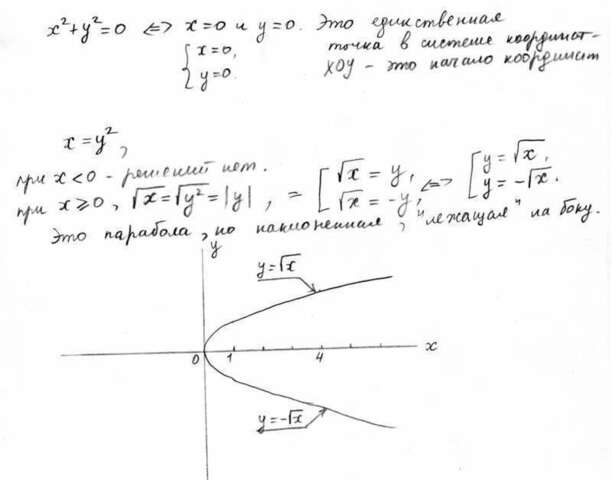 x²+y²=0 <=> x=0 и y=0. Это единственная
{ x=0, точка в системе координат-
{ y=0. XOY - это начало координат
x=y²,
при x<0 - решений нет.
при x≥0, √x=√y²=|y|, = [ √x = y, <=> [ y=√x,
√x = -y, y=-√x.
Это парабола, но наклоненная, "лежащая" на боку.
y
y=√x
0 1 4 x
y=-√x